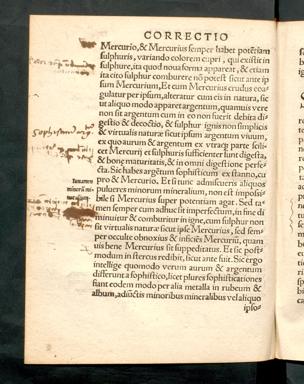 CORRECTIO
Mercurio, & Mercurius semper habet potẽtiam
sulphuris, variando colorem cupri, qui existit in
sulphure, ita quod noua forma appareat, & etiam
ita cito sulphur comburere nõ potest sicut ante ip
sum Mercurium, Et cum Mercurius crudus coa-
gulatur per ipsum, alteratur cum eis in natura, sic
ut aliquo modo appareat argentum, quamuis vere
non sit argentum cum in eo non fuerit debita di-
gestio & decoctio, & sulphur ignis non simplicis
& virtualis naturæ sicut ipsum argentum viuum,
ex quo aurum & argentum ex vtraq; parte scili-
cet Mercurij et sulphuris sufficienter sunt digesta,
& bone maturitatis, & in omni digestione perfe-
cta. Sic habes argētum sophisticum ex stanno, cu
pro & Mercurio. Et si tunc admiscueris aliquos
pulueres minorum mineralium, non est impossi-
bile si Mercurius super potentiam agat. Sed ta-
men semper cum adhuc sit imperfectum, in fine di
minuitur & comburitur in igne, cum sulphur non
sit virtualis naturæ sicut ipse Mercurius, sed sem-
per occulte obnoxius & inficiẽs Mercuriũ, quam
uis bene Mercurius sit suppeditatus. Et sic post-
modum in stercus redibit, sicut ante fuit. Sic ergo
intellige quomodo verum aurum & argentum
differunt a sophistico, licet plures sophisticationes
fiant eodem modo per alia metalla in rubeum &
album, adiunctis minoribus mineralibus vel aliquo
ipso-